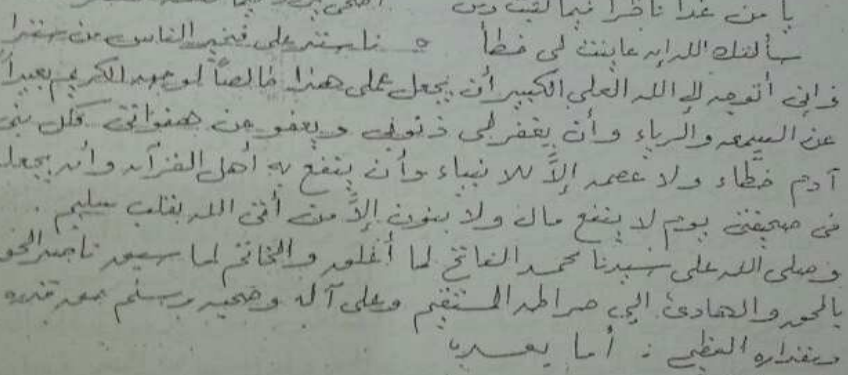 يا من غدا ناظرا فيما كتبت ومن
سألتك الله إن عاينت لي خطأ فاستر علي فخير الناس من سترا
فإني أتوجه إلى الله العلي الكبير أن يجعل عملي هذا خالصاً لوجهه الكريم بعيداً
عن السمعه والرياء وأن يغفر لي ذنوبي ويعفو عن هفواتي فكل بني
آدم خطاء ولا عصمه إلاَّ للانبياء وأن ينفع به أهل القرآن وأن يجعله
في صحيفتي يوم لا ينفع مال ولا بنون إلاَّ من أتى الله بقلب سليم .
وصلى الله على سيدنا محمد الفاتح لما أغلق والخاتم لما سبق ناصر الحق
بالحق والهادي إلى صراطه المستقيم وعلى آله وصحبه وسلم حق قدره
ومقداره العظيم : أما بعد